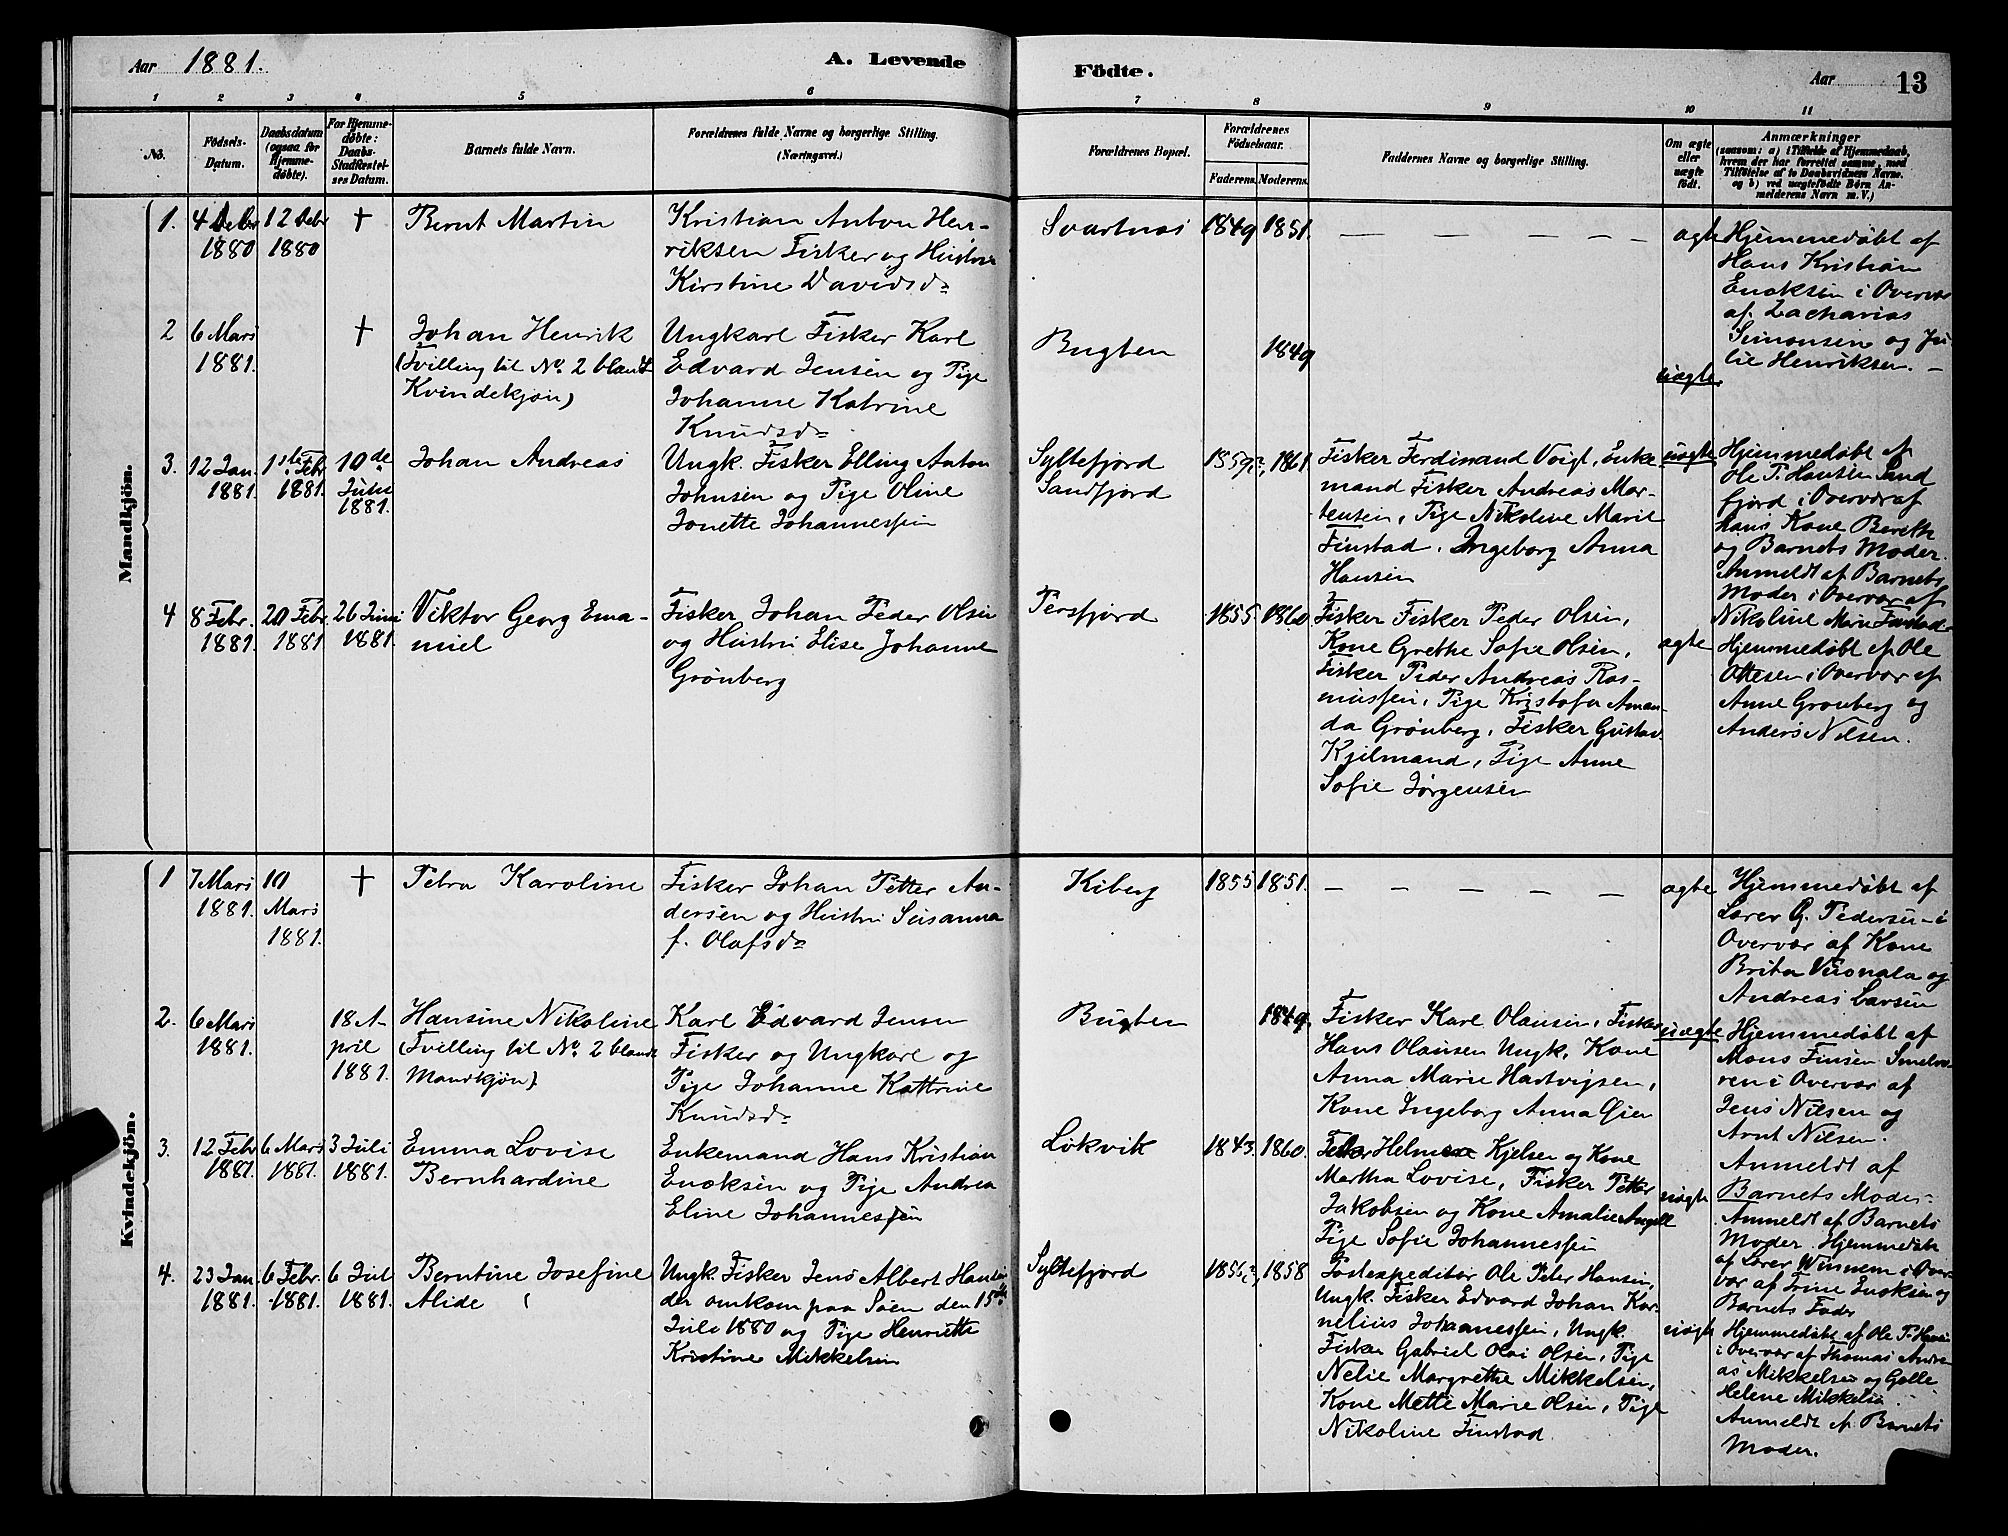 Aar 1881. A. Levende Födte. Aar 13
1 2 3 4 5 6 7 8 9 10 11
No. Födsels-Datum. Daabsdatum (ogsaa for Hjemme-döbte). For Hjemme-döbte: Daabs-Stadfæstel-ses Datum. Barnets fulde Navn. Forældrenes fulde Navne og borgerlige Stilling. (Næringsvei.) Forældrenes Bopæl. Forældrenes Födselsaar. Faderens. Moderens. Faddernes Navne og borgerlige Stilling. Om ægte eller uægte födt. Anmærkninger (saasom: a) i Tilfælde af Hjemmedaab, hvem der har forrettet samme, med Tilföielse af to Daabsvidners Navne, og b) ved uægtefödte Börn An-melderens Navn m. V.)
Mandkjön.
1. 4 Debr 1880
12 Debr 1880
†
Bernt Martin
Kristian Anton Hen-
riksen Fisker og Hustru
Kirstine Davidsd.
Svartnes
1849 1851.
— — — — — —
ægte
Hjemmedøbt af
Hans Kristian
Enoksen i Overvær
af Zacharias
Simonsen og Ju
lie Henriksen. —
2 6 Mars 1881.
†
Johan Henrik
(Tvilling til No. 2 blandt
Kvindekjøn)
Ungkarl Fisker Karl
Edvard Jensen og Pige
Johanne Katrine
Knudsd.
Bugten
1849
uægte
3. 12 Jan. 1881.
1ste Febr. 1881.
10de Juli 1881.
Johan Andreas
Ungk. Fisker Elling Anton
Johnsen og Pige Oline
Jonette Johannessen
Syltefjord
Sandfjord
1859?, 1861.
Fisker Ferdinand Voigt, Enke
mand Fisker Andreas Mor-
tensen, Pige Nikoline Marie
Finstad, Ingeborg Anna
Hansen
uægte
Hjemmedøbt af
Ole P. Hansen Sand
fjord i Overvær af
hans Kone Bereth
og Barnets Moder.
Anmeldt af Barnets
Moder i Overvær af
Nikoline Marie Finstad.
4 8 Febr. 1881.
20 Febr. 1881
26 Juni 1881.
Viktor Georg Ema-
nuel
Fisker Johan Peder Olsen
og Hustru Elise Johanne
Grønberg
Persfjord
1855. 1860.
Fisker Fisker Peder Olsen,
Kone Grethe Sofie Olsen,
Fisker Peder Andreas Ras-
mussen, Pige Kristofa Aman-
da Grønberg, Fisker Gustav
Kjelmand, Pige Anne
Sofie Jørgensen
ægte
Hjemmedøbt af Ole
Ottesen i Overvær af
Anne Grønberg og
Anders Nilsen.
Kvindekjön.
1 7 Mars 1881.
10 Mars 1881.
†
Petra Karoline
Fisker Johan Petter An-
dersen og Hustru Susanna
f. Olafsd.
Kiberg
1855 1851.
— — — — —
ægte
Hjemmedøbt af
Lærer G. Pedersen i
Overvær af Kone
Brita og
Andreas Larsen
2. 6 Mars 1881.
18 A-
pril
1881.
Hansine Nikoline
(Tvilling til No. 2 blandt
Mandkjøn)
Karl Edvard Jensen
Fisker og Ungkarl og
Pige Johanne Kathrine
Knudsd.
Bugten
1849.
Fisker Karl Olausen, Fisker
Hans Olausen Ungk. Kone
Anna Marie Hartvigsen,
Kone Ingeborg Anna
uægte
Hjemmedøbt af
Mons Finsen Smelro-
ren i Overvær af
Jens Nilsen og
Arnt Nilsen.
Anmeldt af
Barnets Moder.
3. 12 Febr 1881.
6 Mars 1881.
3 Juli 1881.
Emma Lovise
Bernhardine
Enkemand Hans Kristian
Enoksen og Pige Andrea
Eline Johannessen
Løkvik
1843. 1860.
Fisker Kjelsen og Kone
Martha Lovise, Fisker Petter
Jakobsen og Kone Amalie Angell
Pige Sofie Johannessen
uægte
Anmeldt af Barnets
Moder. Hjemmedøbt
af Lærer Winnem i Over-
vær af Trine Enoksen og
Barnets Fader
4. 23 Jan. 1881.
6 Febr. 1881.
6 Jul 1881.
Berntine Josefine
Alide
Ungk. Fisker Jens Albert Hansen
der omkom paa Søen den 15de
Juli 1880 og Pige Henriette
Kristine Mikkelsen
Syltefjord
1856?, 1858
Postexpeditør Ole Peter Hansen,
Ungk. Fisker Edvard Johan Kor-
nelius Johannessen, Ungk.
Fisker Gabriel Olai Olsen, Pige
Nelie Margrethe Mikkelsen,
Kone Mette Marie Olsen, Pige
Nikoline Finstad.
uægte
Hjemmedøbt af Ole P. Hansen
i Overvær af Thomas Andre
as Mikkelsen og
Helene Mikkelsen.
Anmeldt af Barnets
Moder.